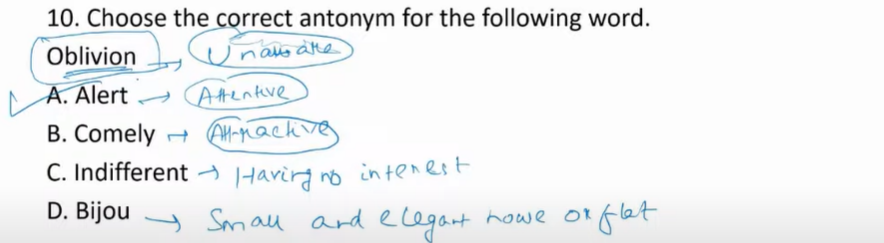 10. Choose the correct antonym for the following word.
Oblivion → Unaware
A. Alert → Attentive
B. Comely → Attractive
C. Indifferent → Having no interest
D. Bijou → Small and elegant howe or flat